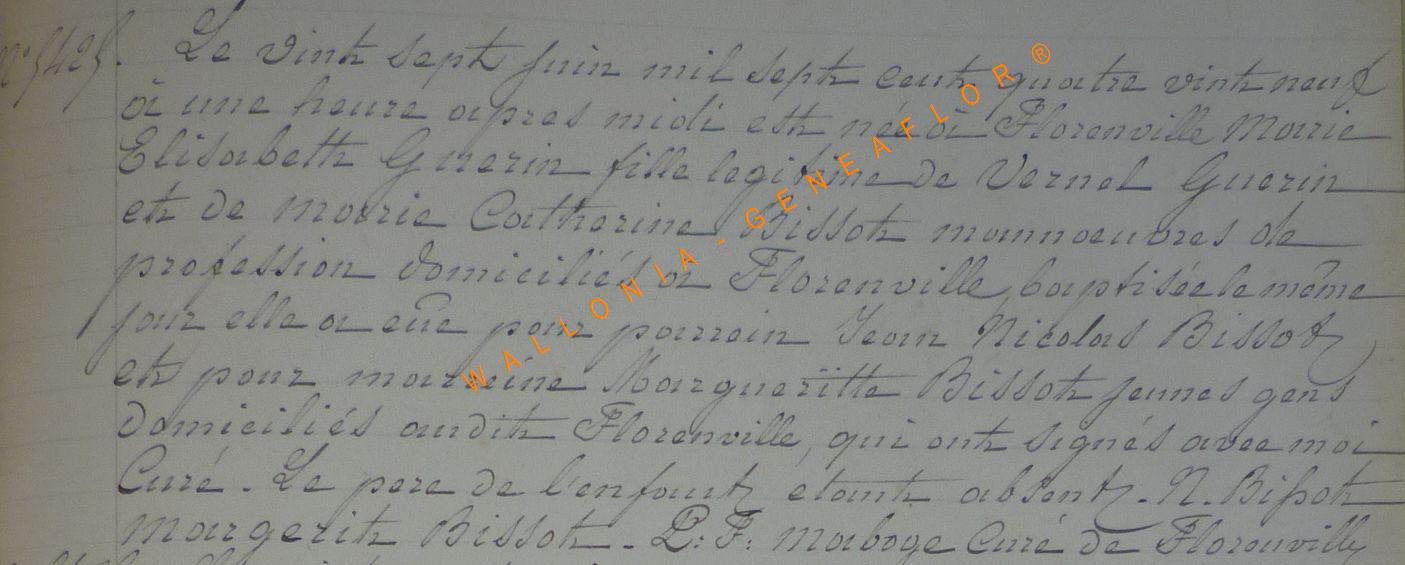 N° 5425. Le vint sept juin mil sept cent quatre vint neuf
à une heure apres midi est née à Florenville Marie
Elisabeth Guerin fille legitime de Vernel Guerin
et de Marie Catherine Bissot mannoeuvres de
profession domiciliés a Florenville, baptisée le même
jour elle a eûe pour parrein Jean Nicolas Bissot,
et pour marreine Margueritte Bissot jeunes gens
domiciliés audit Florenville, qui ont signés avec moi
Curé. Le pere de l'enfant etant absent. N. Bissot
Margerit Bissot. P: F: Maboge Curé de Florenville
WALLONIA-GENEAFLOR®